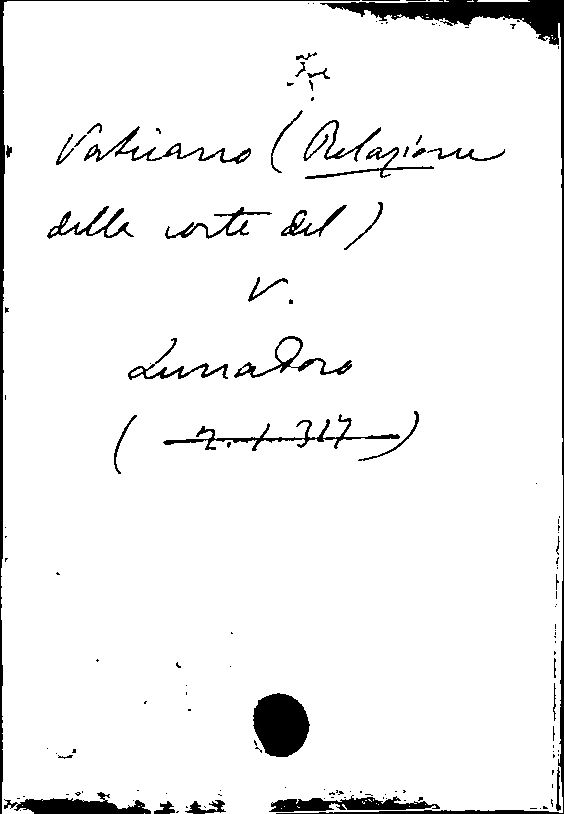 Vaticano (Relazione
della corte del)
V.
Lunadoro
( 7.1.317 )